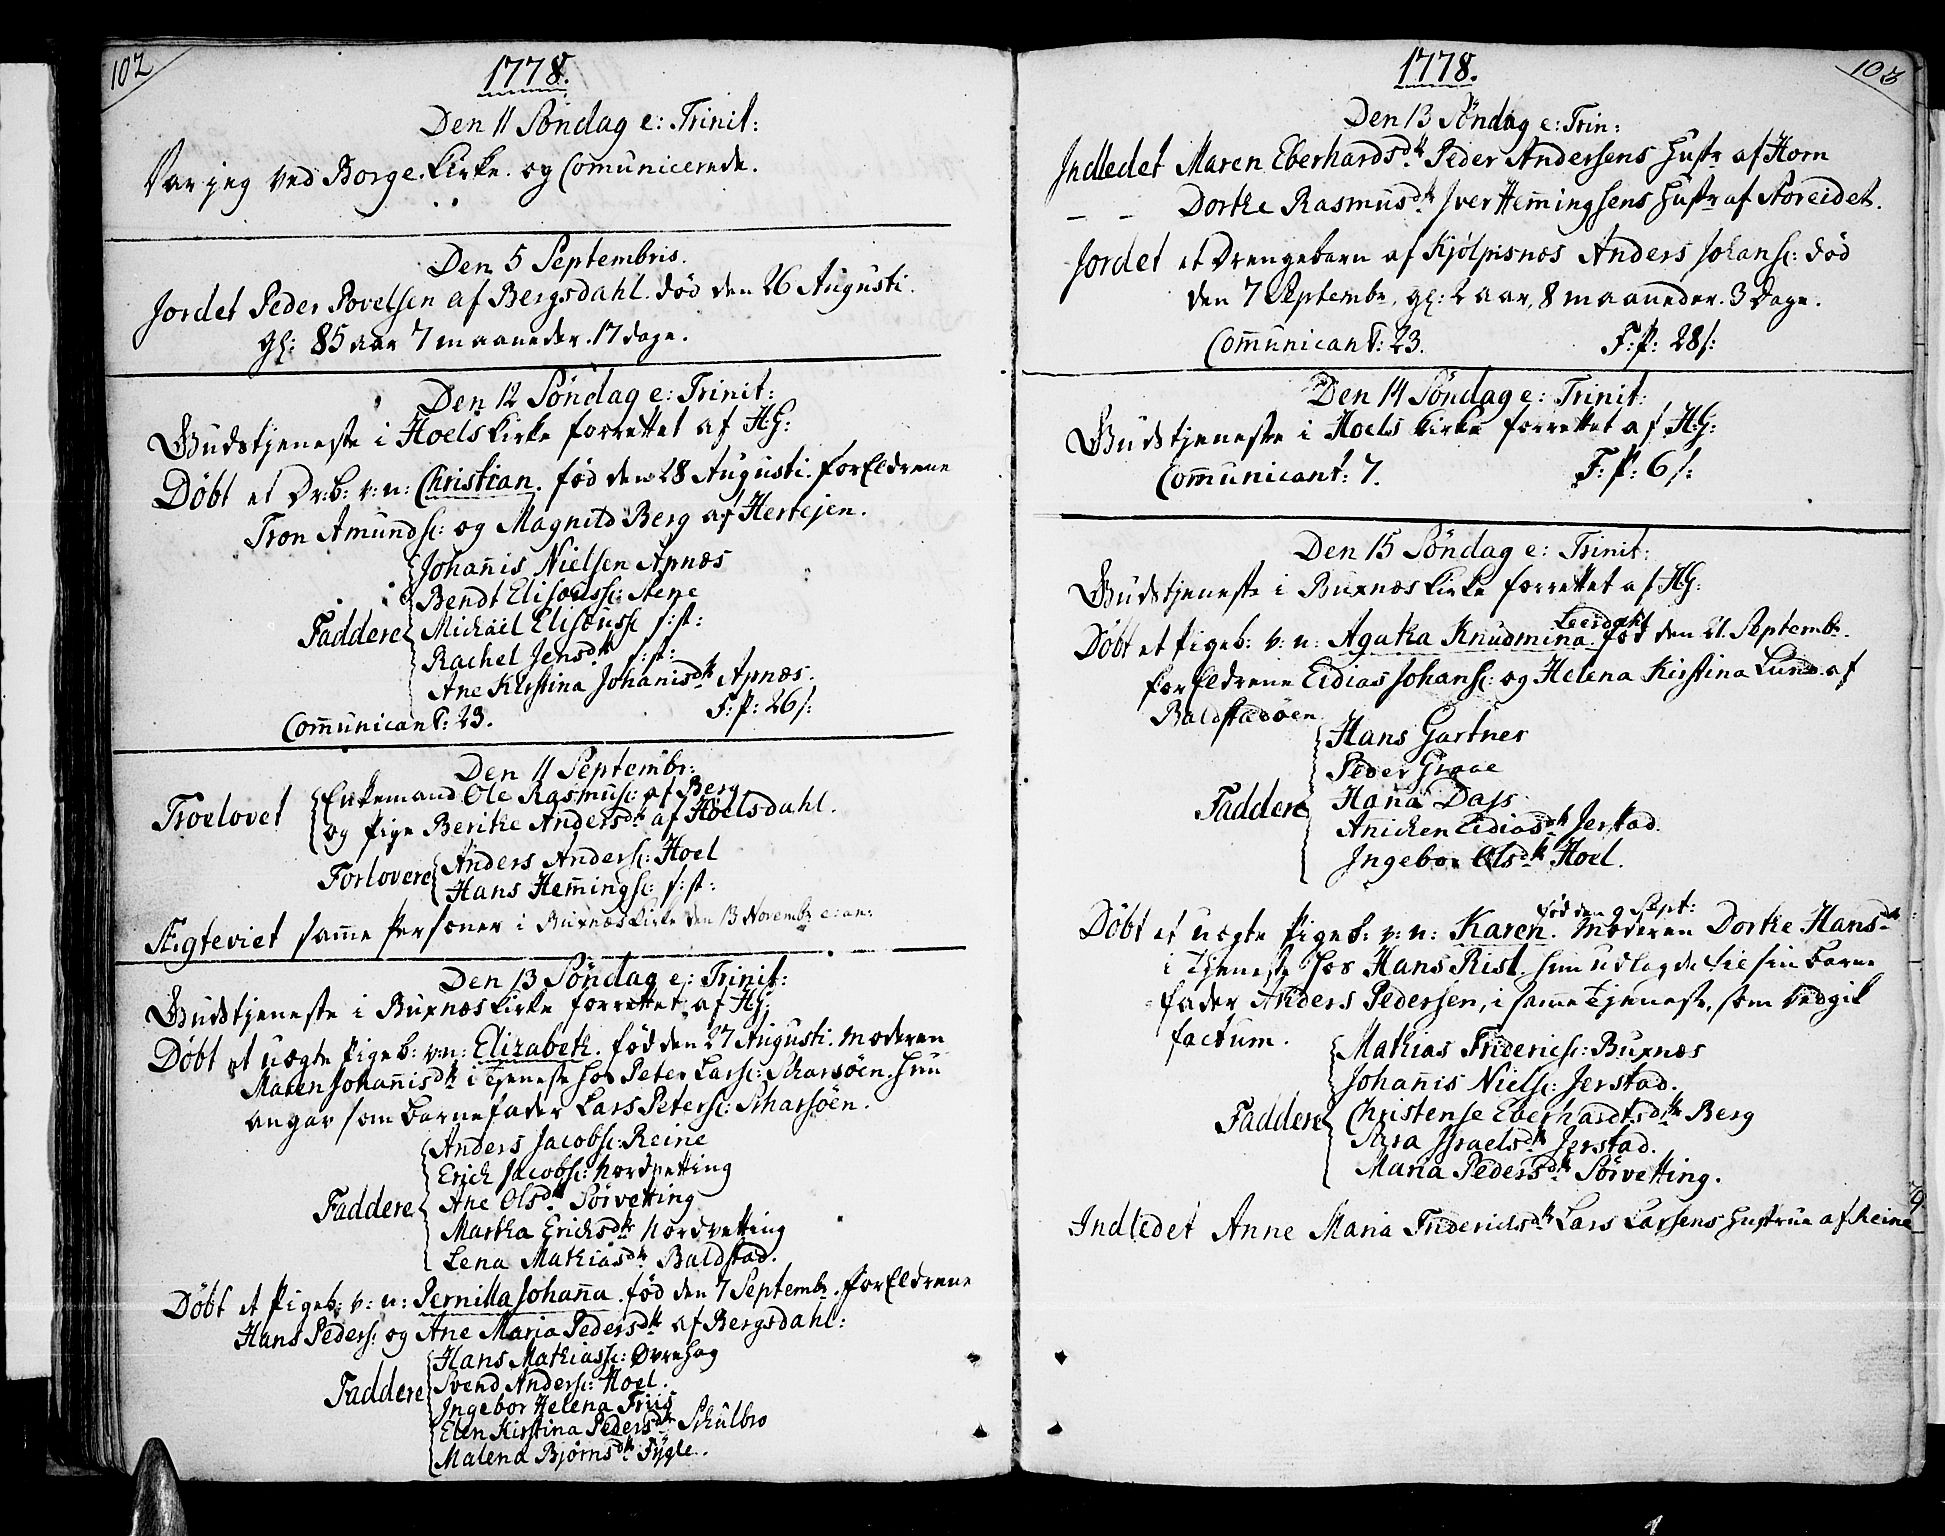 102
1778.
Den 11 Søndag e: Trinit:
Var jeg ved Borge Kirke og Comunicerede.
Den 5 Septembris.
Jordet Peder Povelsen af Bergsdahl. død den 26 Augusti.
gl: 85 aar 7 maaneder. 17 dage.
Den 12 Søndag e: Trinit:
Gudstjeneste i Hoels Kirke forrettet af HG:
Døbt et Dr:b: v: n: Christian. fød den 28 Augusti. forEldrene
Tron Amunds: og Magnild Berg af Hertejen.
Johañis Nielsen Apnæs
Bendt Elisæuss: Stene
Faddere Michäel Elisæuss s:st:
Rachel Jensdtr s:st:
Ane Kirstina Johanisdtr Apnæs.
Com̃unicant: 23. F: P: 26 s:
Den 11 Septembr:
Troelovet Enkemand Ole Rasmus: af Berg
og Pige Berithe Andersdtr af Hoelsdahl.
Forlovere Anders Anders: Hoel
Hans Hem̃ings: s:st:
Ægteviet sam̃e Personer i Buxnæs Kirke den 13 Novembr e: an:
Den 13 Søndag e: Trinit:
Gudstjeneste i Buxnæs Kirke forrettet af HG:
Døbt et uægte Pigeb: v: n: Elizabeth. fød den 27 Augusti. Moderen
Maren Johañisdtr i Tjeneste hos Peter Lars: Scharsöen. hun
angav som Barnefader Lars Peters: Scharsöen.
Anders Jacobs: Reine
Erich Jacobs: Nordvetting
Faddere Ane Olsdtr Sörvetting
Martha Erichsdtr Nordvetting
Lena Mathiasdtr Baldstad.
Døbt et Pigeb: v: n: Pernilla Johaña. fød den 7 Septembr. forEldrene
Hans Peders: og Ane Maria Pedersdtr af Bergsdahl:
Hans Mathiass: Øvrehag
Faddere Svend Anders: Hoel.
Ingebor Helena Friis
Elen Kirstina Pedersdtr Schülbro
Malena Bjørnsdtr Fygle.
1778.
103
Den 13 Søndag e: Trin:
Indledet Maren Eberhardsdtr Peder Andersens Hustr af Horn
– – Dorthe Rasmusdtr Iver Hem̃ingsens Hustr af Storeidet.
Jordet et Drengebarn af Kjölpisnæs Anders Johans: død
den 7 Septembr. gl: 2 aar, 8 maaneder. 3 Dage.
Com̃unicant: 23. F: P: 28 s:
Den 14 Søndag e: Trinit:
Gudstjeneste i Hoels Kirke forrettet af HG:
Com̃unicant: 7. F: P: 6 s:
Den 15 Søndag e: Trinit:
Gudstjeneste i Buxnæs Kirke forrettet af HG:
Leerdahl
Døbt et Pigeb: v: n: Agatha Knudmina. fød den 21. Septembr.
forEldrene Eidias Johans: og Helena Kirstina Lund af
Baldstadöen
Hans Gartner
Peder Graae
Faddere Haña Dass
Añichen Eidiasdtr Jerstad.
Ingebor Olsdtr Hoel.
fød den 9 Sept:
Døbt et uægte Pigeb: v: n: Karen. Moderen Dorthe Hansdtr
i Tjeneste hos Hans Rist. hun udlagde til sin Barne
fader Anders Pedersen, i sam̃e Tjeneste, som vedgik
factum.
Mathias Friderics: Buxnæs
Johañis Niels: Jerstad.
Faddere Christense Eberhardtsdtr Berg
Sara Israelsdtr Jerstad.
Maria Pedersdtr Sörvetting.
Indledet Anne Maria Friderichsdtr Lars Larsens Hustrue af Reine